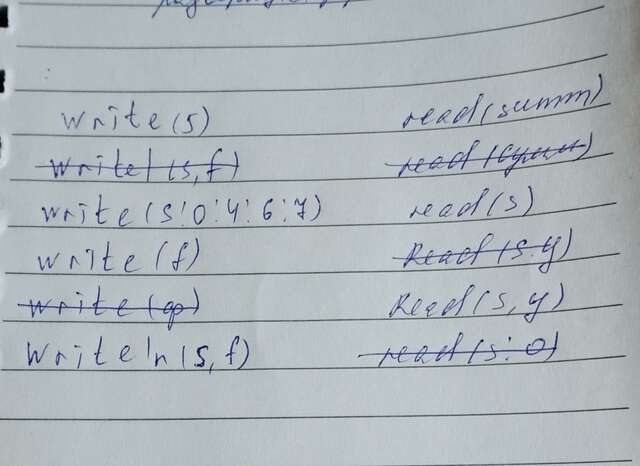 write(s)
read(summ)
write(s,f)
read(сумм)
write(s:0:4:6:7)
read(s)
write(f)
Read(s.y)
write(ф)
Read(s,y)
Writeln(s,f)
read(s:0)